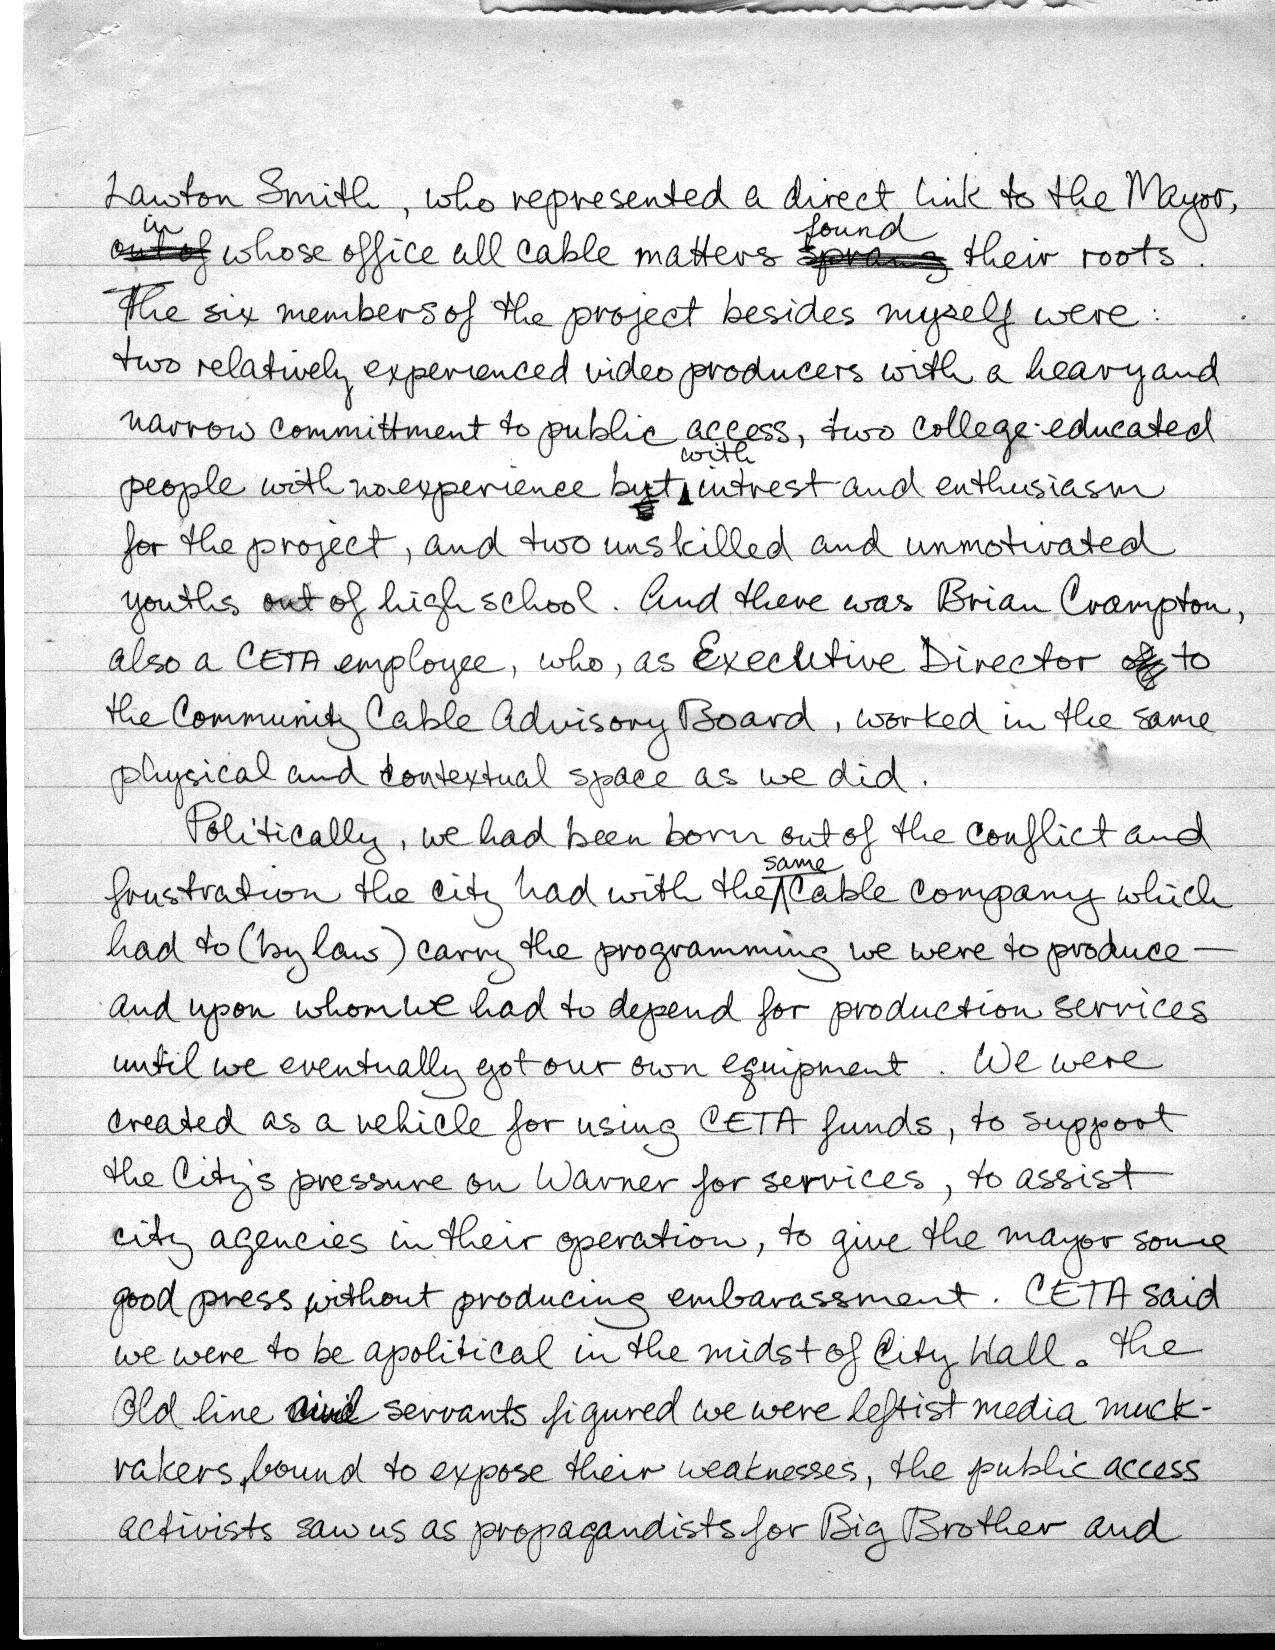 Lawton Smith, who represented a direct link to the Mayor,
in found
out of whose office all cable matters sprang their roots.
The six members of the project besides myself were:
two relatively experienced video producers with a heavy and
narrow committment to public access, two college-educated
with
people with no experience but intrest and enthusiasm
for the project, and two unskilled and unmotivated
youths out of high school. And there was Brian Crampton,
also a CETA employee, who, as Executive Director of to
the Community Cable Advisory Board, worked in the same
physical and contextual space as we did.
Politically, we had been born out of the conflict and
same
frustration the city had with the cable company which
had to (by law) carry the programming we were to produce—
and upon whom we had to depend for production services
until we eventually got our own equipment. We were
created as a vehicle for using CETA funds, to support
the City's pressure on Warner for services, to assist
city agencies in their operation, to give the mayor some
good press, without producing embarassment. CETA said
we were to be apolitical in the midst of City Hall. The
Old line civil servants figured we were leftist media muck-
rakers, bound to expose their weaknesses, the public access
activists saw us as propagandists for Big Brother and